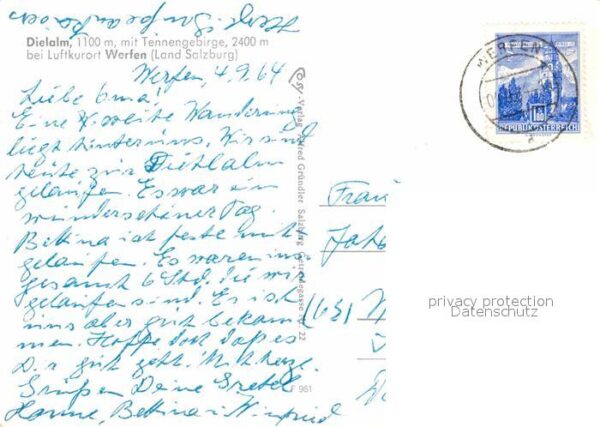 Dielalm, 1100 m, mit Tennengebirge, 2400 m
bei Luftkurort Werfen (Land Salzburg)
Werfen, 4.9.64
Liebe Oma!
Eine weite Wanderung
liegt hinter uns. Wir sind
heute zur Dielalm
gelaufen. Es war ein
wunderschöner Tag.
Bettina ist feste mit
gelaufen. Es waren ins
gesamt 6 Std. die wir
gelaufen sind. Es ist
uns aber gut bekom
men. Hoffe doch daß es
D. r gut geht. M. herzl.
Grüßen Deine Gretel
Hanne, Bettina u. Winfried
Herzl.
Cosy-Verlag Alfred Gründler Salzburg
22
F 961
WERFEN
REPUBLIK ÖSTERREICH
Frau
(63)
privacy protection
Datenschutz